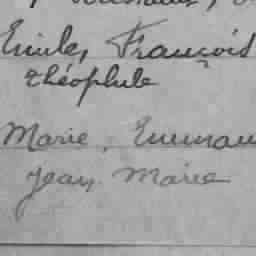 Emile, François
théophile
Marie, Emman
Jean Marie